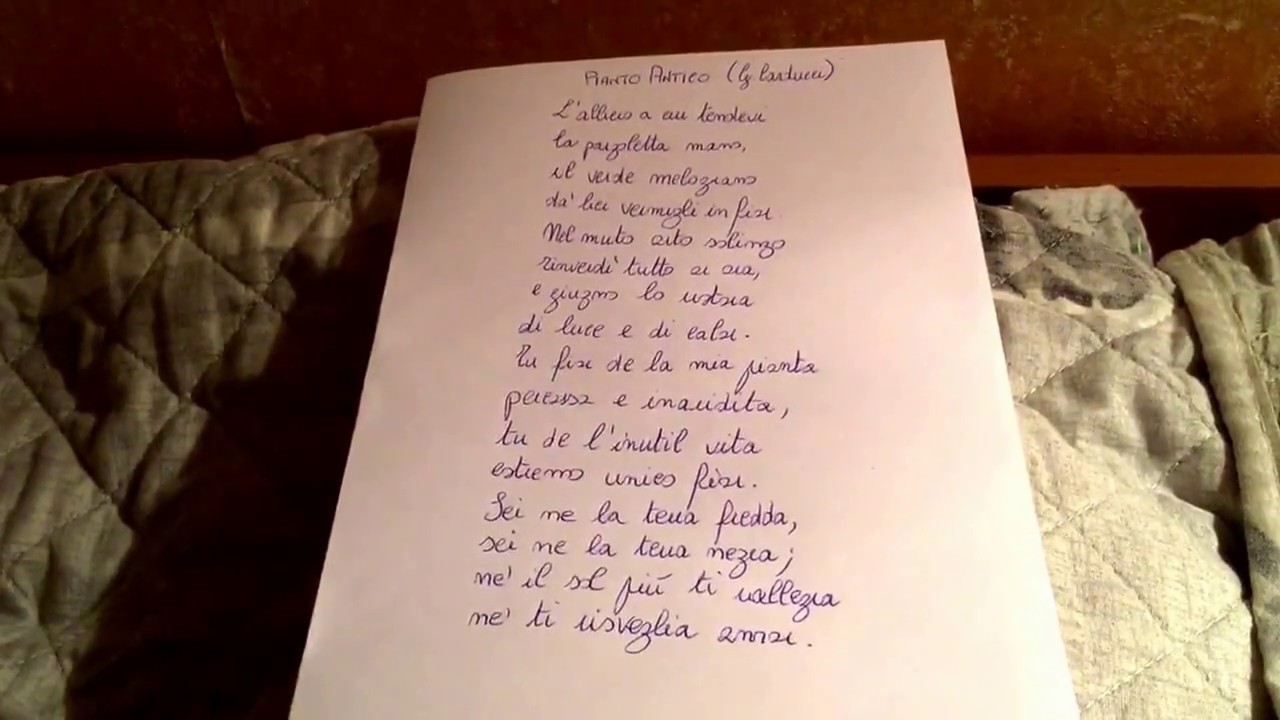 PIANTO ANTICO (G Carducci)
L'albero a cui tendevi
la pargoletta mano,
il verde melograno
da' bei vermigli in fior.
Nel muto orto solingo
rinverdì tutto or ora,
e giugno lo ristora
di luce e di calor.
Tu fior de la mia pianta
percossa e inaridita,
tu de l'inutil vita
estremo unico fior.
Sei ne la terra fredda,
sei ne la terra negra;
né il sol più ti rallegra
né ti risveglia amor.